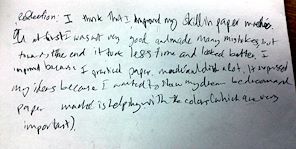 reflection: I think that I improved my skill in paper
at first I was not very good and made many mistakes, but
towards the end it took less time and looked better. I
improved because I practiced paper and did it a lot. It expressed
my ideas because I wanted to show my dream
paper is helping with the colors (which are very
important).